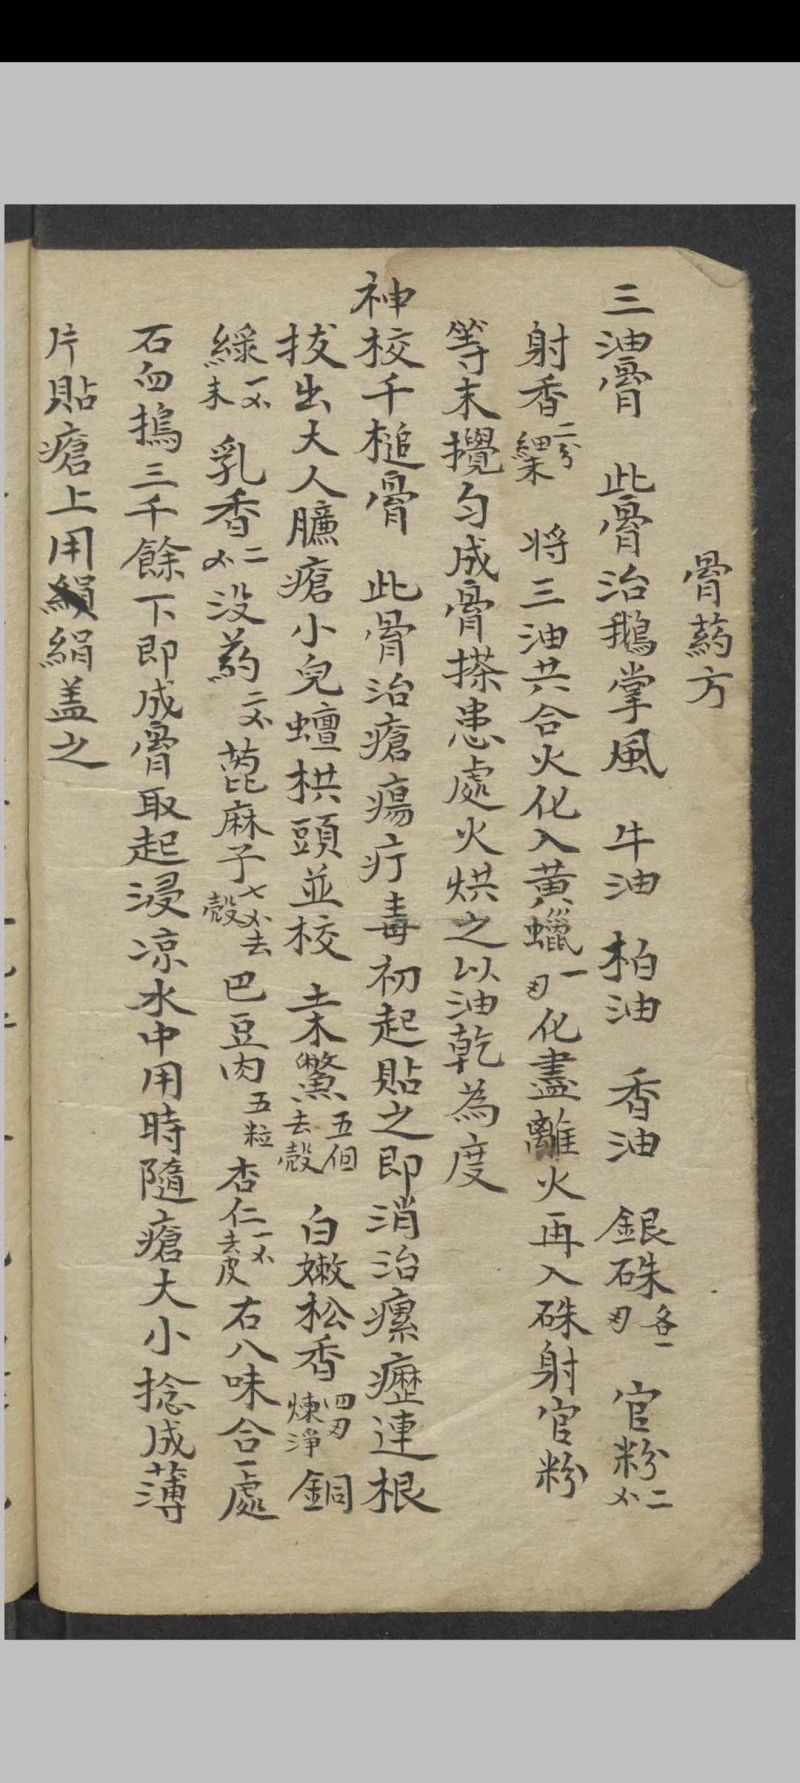 膏药方
三油膏　此膏治鵝掌風　牛油　柏油　香油　銀硃各一刄　官粉二
射香二分細末　将三油共合火化入黄蠟一刄化盡離火再入硃射官粉
等末攪匀成膏搽患處火烘之以油乾為度
神校千槌膏　此膏治瘡瘍疔毒初起貼之即消治瘰癧連根
拔出大人臁瘡小兒蟺拱頭並校　土木鱉五個去殼　白嫩松香四刄煉淨　銅
綠一末　乳香二　没药二　萞麻子七去殼　巴豆肉五粒　杏仁一去皮　右八味合一處
石臼搗三千餘下即成膏取起浸凉水中用時隨瘡大小捻成薄
片貼瘡上用絹盖之